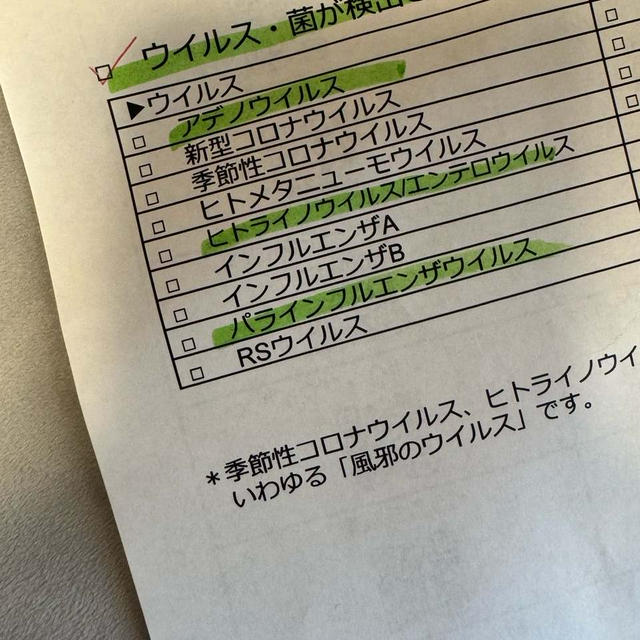 □ ウイルス・菌が検出
▶ウイルス
□ アデノウイルス
□ 新型コロナウイルス
□ 季節性コロナウイルス
□ ヒトメタニューモウイルス
□ ヒトライノウイルス/エンテロウイルス
□ インフルエンザA
□ インフルエンザB
□ パラインフルエンザウイルス
□ RSウイルス
*季節性コロナウイルス、ヒトライノウイ
いわゆる「風邪のウイルス」です。